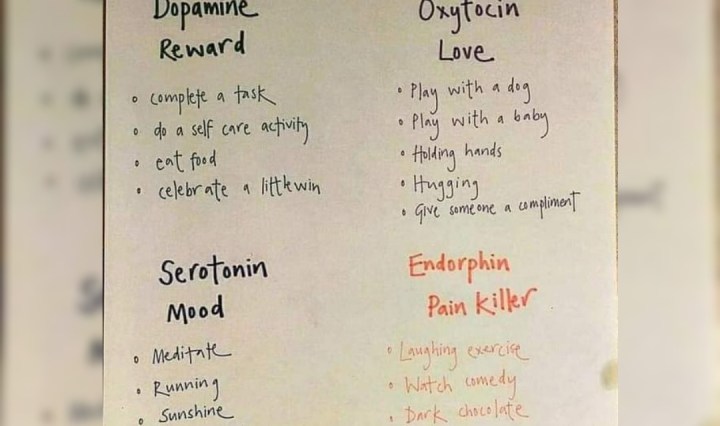 Dopamine
Reward
• complete a task
• do a self care activity
• eat food
• celebrate a little win
Oxytocin
Love
• Play with a dog
• Play with a baby
• Holding hands
• Hugging
• Give someone a compliment
Serotonin
Mood
• Meditate
• Running
• Sunshine
Endorphin
Pain Killer
• Laughing exercise
• Watch comedy
• Dark chocolate